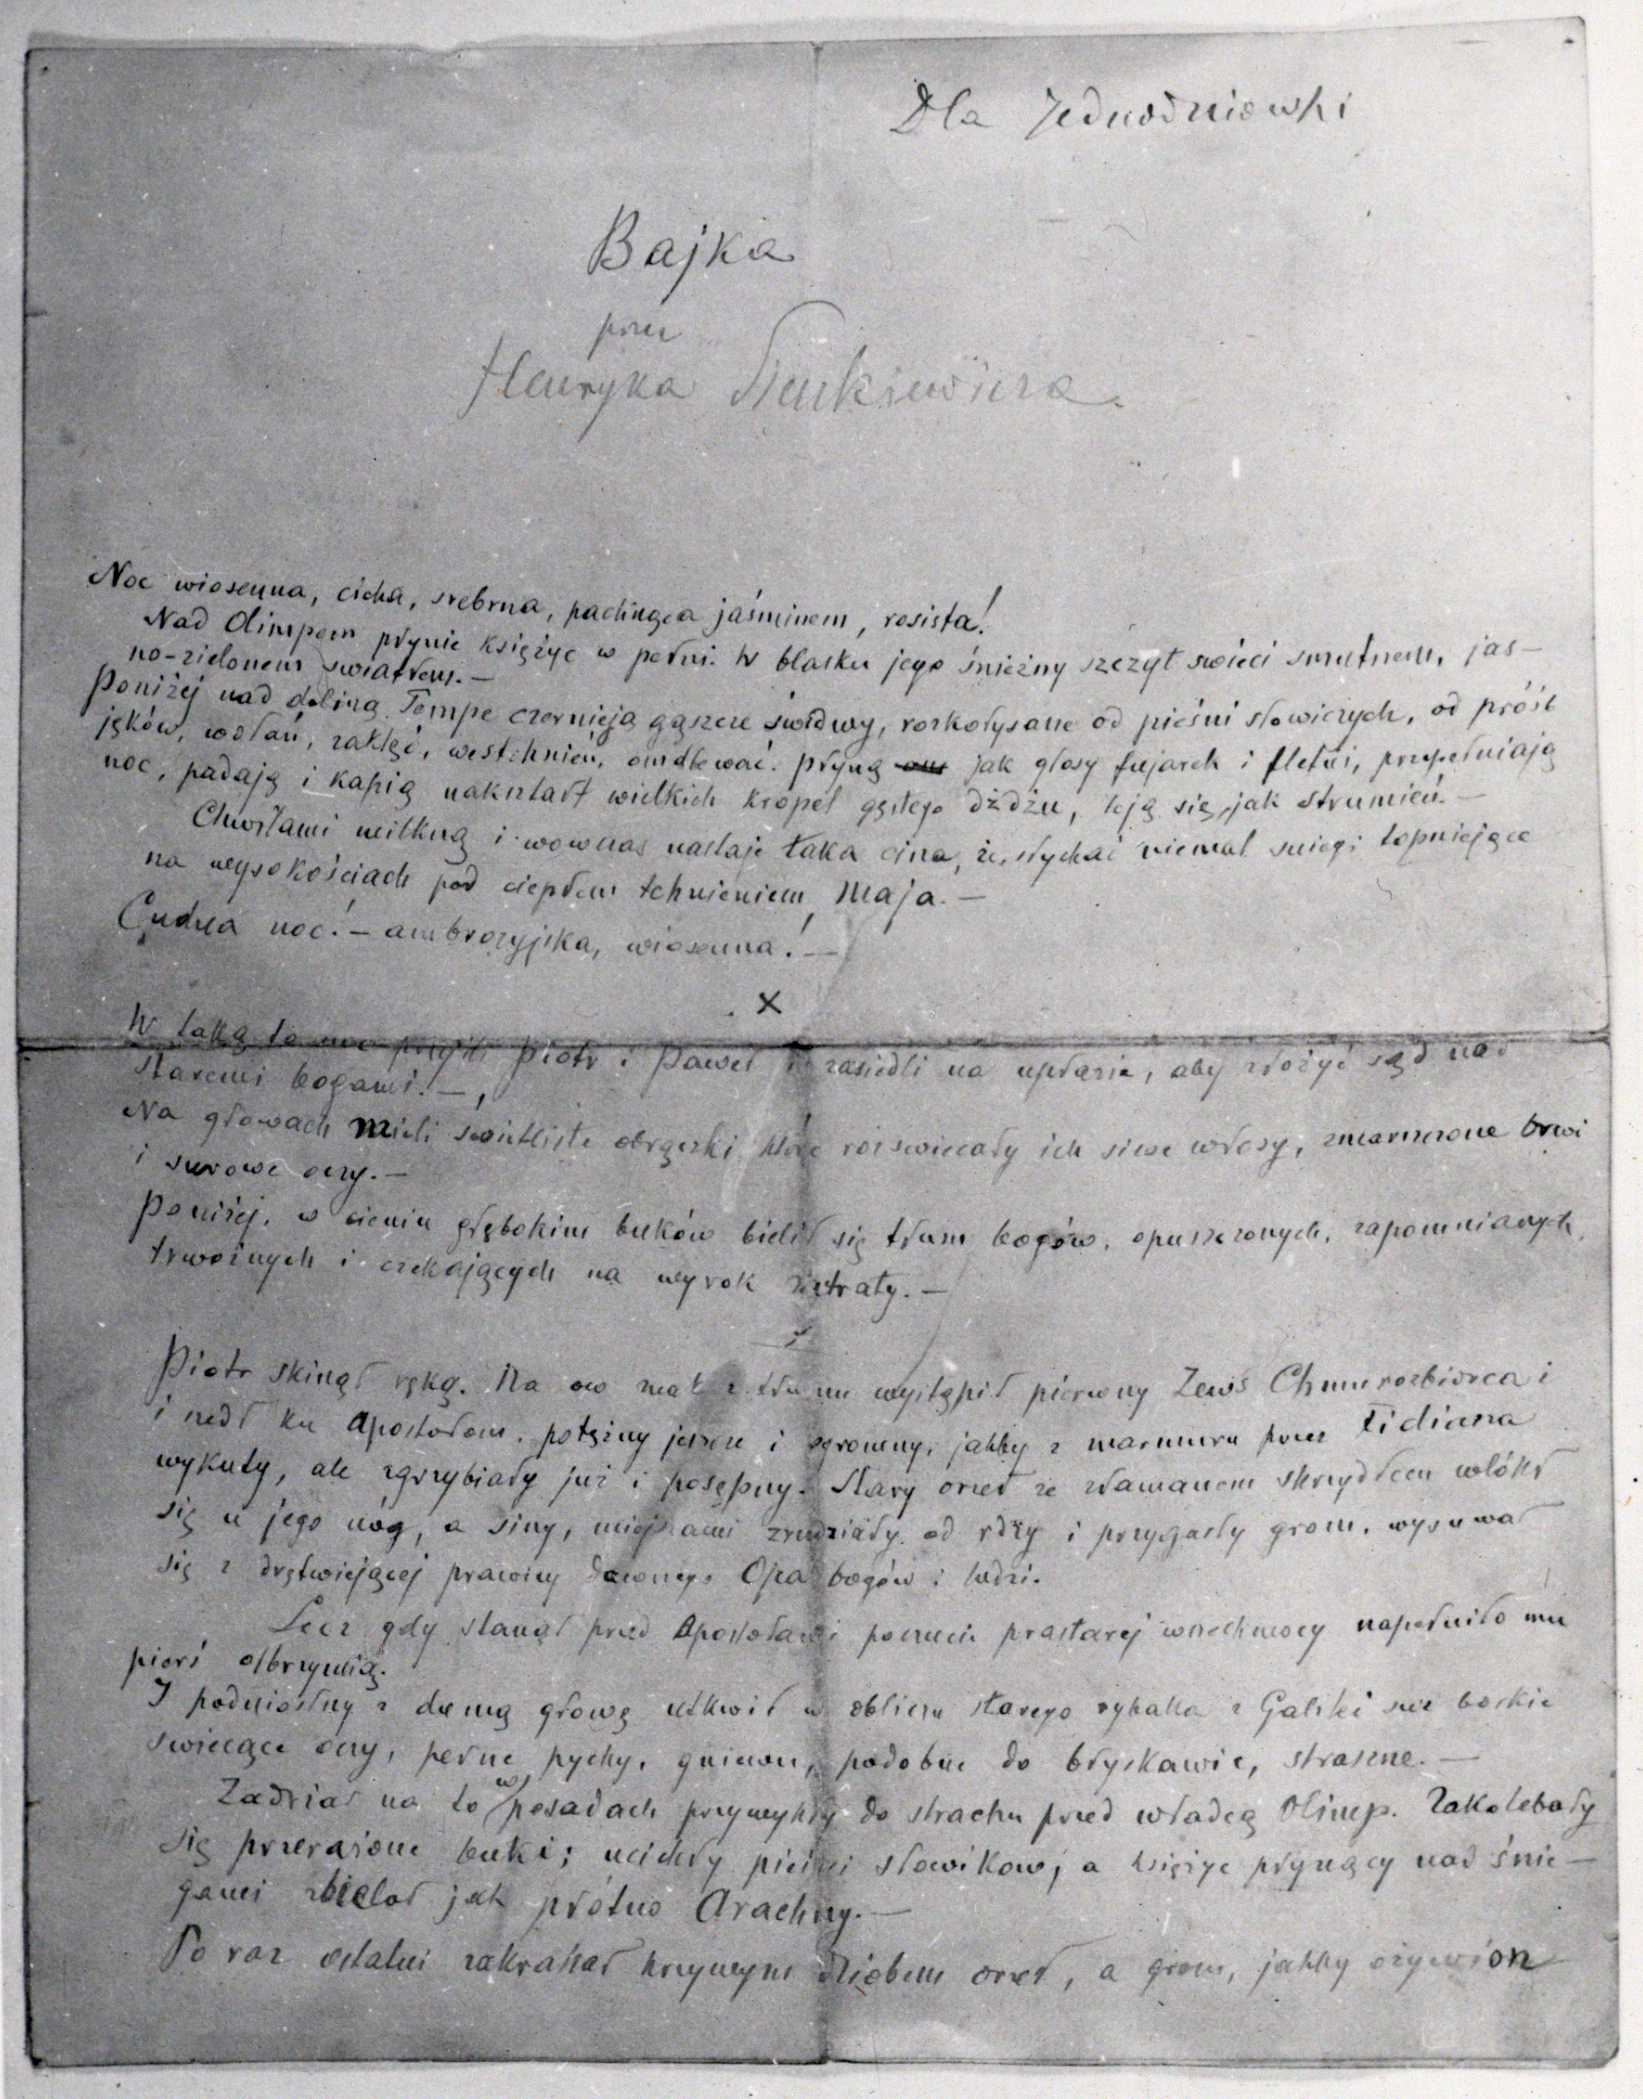 Dla Jednodniówki
Bajka
przez
Henryka Sienkiewicza.
Noc wiosenna, cicha, srebrna, pachnąca jaśminem, rosista!
Nad Olimpem płynie księżyc w pełni. W blasku jego śnieżny szczyt świeci smutnem, jas-
no-zielonem światłem. —
Poniżej nad doliną Tempe czernieją gąszcze świdwy, rozkołysane od pieśni słowiczych, od próśb
jęków, wołań, zaklęć, westchnień, omdlewać. Płyną jak głosy fujarek i fletni, przepełniają
noc, padają i kapią nakształt wielkich kropel gęstego dżdżu, leją się, jak strumień. —
Chwilami milkną i wówczas nastaje taka cisza, że słychać niemal śniegi topniejące
na wysokościach pod ciepłem tchnieniem Maja. —
Cudna noc! — ambrozyjska, wiosenna! —
x
W taką to noc przyszli Piotr i Paweł i zasiedli na upłazie, aby złożyć sąd nad
staremi bogami. —
Na głowach mieli świetliste obrączki które rozświecały ich siwe włosy, zmarszczone brwi
i surowe oczy. —
Poniżej, w cieniu głębokim buków bielił się tłum bogów, opuszczonych, zapomnianych,
trwożnych i czekających na wyrok zatraty. —
Piotr skinął ręką. Na ów znak z tłumu wystąpił pierwszy Zews Chmurozbiorca i
i szedł ku Apostołom, potężny jeszcze i ogromny, jakby z marmuru przez Fidiasza
wykuty, ale zgrzybiały już i posępny. Stary orzeł ze złamanem skrzydłem wlókł
się u jego nóg, a siny, miejscami zrudziały od rdzy i przygasły grom, wysuwał
się z drętwiejącej prawicy dawnego Ojca bogów i ludzi.
Lecz gdy stanął przed Apostołami poczucie prastarej wszechmocy napełniło mu
pierś olbrzymią.
I podniósłszy z dumą głowę utkwił w obliczu starego rybaka z Galilei swe boskie
świecące oczy, pełne pychy, gniewu, podobne do błyskawic, straszne. —
Zadrżał na to w posadach przywykły do strachu przed władcą Olimp. Zakolebały
się przerażone buki; ucichły pieśni słowików, a księżyc płynący nad śnie-
gami zbielał jak płótno Arachny. —
Po raz ostatni zakrakał krzywym dziobem orzeł, a grom, jakby ożywion